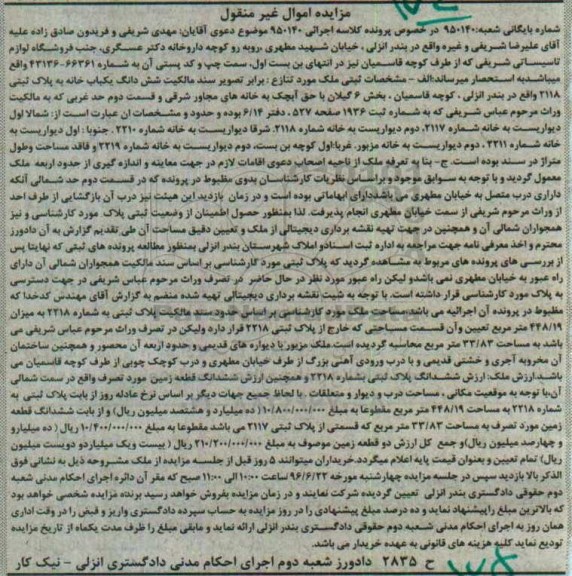 مزایده اموال غیر منقول
شماره بایگانی شعبه: ۹۵۰۱۴۰ در خصوص پرونده کلاسه اجرائی ۹۵۰۱۴۰ موضوع دعوی آقایان: مهدی شریفی و فریدون صادق زاده علیه
آقای علیرضا شریفی و غیره واقع در بندر انزلی ، خیابان شهید مطهری ،روبه رو کوچه داروخانه دکتر عسگری، جنب فروشگاه لوازم
تاسیساتی شریفی که از طرف کوچه قاسمیان نیز در انتهای بن بست اول، سمت چپ و کد پستی آن به شماره ۶۶۳۶۱-۴۳۱۳۶ واقع
میباشد،به استحضار میرساند:الف – مشخصات ثبتی ملک مورد تنازع : برابر تصویر سند مالکیت شش دانگ یکباب خانه به پلاک ثبتی
۲۲۱۸ واقع در بندر انزلی ، کوچه قاسمیان ، بخش ۶ گیلان با حق آبچک به خانه های مجاور شرقی و قسمت دوم حد غربی که به مالکیت
وراث مرحوم عباس شریفی که به شماره ثبت ۱۹۳۶ صفحه ۵۲۷ ، دفتر ۶/۱۴ بوده و حدود و مشخصات ان عبارت است از: شمالا اول
دیواریست به خانه شماره ۲۱۱۷، دوم دیواریست به خانه شماره ۲۱۱۸. شرقا دیواریست به خانه شماره ۲۲۱۰ . جنوبا : اول دیواریست به
خانه شماره ۲۲۱۱ ، دوم دیواریست به خانه مزبور. غربا:اول کوچه بن بست، دوم دیواریست به خانه شماره ۲۲۱۹ و فاقد مساحت وطول
متراژ در سند بوده است. ج- بنا به تعرفه ملک از ناحیه اصحاب دعوی اقامات لازم در جهت معاینه و اندازه گیری از حدود اربعه ملک
معمول گردید و با توجه به سوابق موجود و براساس نظریات کارشناسان بدوی مظبوط در پرونده که در قسمت دوم حد شمالی آنکه
داراری درب متصل به خیابان مطهری می باشد،دارای ابهاماتی بوده است و در زمان بازدید این هیئت نیز درب آن بازگشایی از طرف احد
از وراث مرحوم شریفی از سمت خیابان مطهری انجام پذیرفت. لذا بمنظور حصول اطمینان از وضعیت ثبتی پلاک مورد کارشناسی و نیز
همجواران شمالی آن و همچنین در جهت تهیه نقشه برداری دیجیتالی از ملک و تعیین دقیق مساحت آن طی تقدیم گزارش به آن دادورز
محترم و اخذ معرفی نامه جهت مراجعه به اداره ثبت اسنادو املاک شهرستان بندر انزلی بمنظور مطالعه پرونده های ثبتی که نهایتا پس
از بررسی های پرونده های مربوط به مشاهده گردید که پلاک ثبتی مورد کارشناسی بر اساس سند مالکیت همجواران شمالی آن دارای
راه عبور به خیابان مطهری نمی باشدو لیکن راه عبور مورد نظر در حال حاضر در تصرف وراث مرحوم عباس شریفی در جهت دسترسی
به پلاک مورد کارشناسی قرار داشته است. با توجه به شیت نقشه برداری دیجیتالی تهیه شده منضم به گزارش آقای مهندس کدخدا که
مظبوط در پرونده آن اجرائیه می باشد، مساحت ملک مورد کارشناسی بر اساس حدود سند مالکیت پلاک ثبتی به شماره ۲۲۱۸ به میزان
۴۴۸/۱۹ متر مربع تعیین وآن قسمت مساحتی که خارج از پلاک ثبتی ۲۲۱۸ قرار داره ولیکن در تصرف وراث مرحوم عباس شریفی می
باشد به مساحت ۳۳/۸۳ متر مربع محاسبه گردیده است.ملک مزبور با دیواره های قدیمی و حدود اربعه آن محصور و همچنین ساختمان
آن مخروبه آجری و خشتی قدیمی و با درب ورودی آهنی بزرگ از طرف خیابان مطهری و درب کوچک چوبی از طرف کوچه قاسمیان می
باشد.ارزش ملک: ارزش ششدانگ پلاک ثبتی بشماره ۲۲۱۸ و همچنین ارزش ششدانگ قطعه زمین مورد تصرف واقع در سمت شمالی
آن،با توجه به موقعیت مکانی ، مساحت درب و دیوار و متعلقات ، با لحاظ جمیع جهات دیگر بر اساس نرخ عادله روز از بابت پلاک ثبتی به
شماره ۲۲۱۸ به مساحت ۴۴۸/۱۹ متر مربع مقطوعا به مبلغ ۱۰/۸۰۰/۰۰۰/۰۰۰ ( ده میلیارد و هشتصد میلیون ریال) و از بابت ششدانگ قطعه
زمین مورد تصرف به مساحت ۳۳/۸۳ متر مربع که قسمتی از پلاک ثبتی ۲۱۱۷ می باشد مقطوعا به مبلغ ۱۰/۴۰۰/۰۰۰/۰۰۰ ریال ( ده میلیارو
و چهارصد میلیون ریال)و جمع کل ارزش دو قطعه زمین موصوف به مبلغ ۲۱۰/۲۰۰/۰۰۰/۰۰۰ ریال ( بیست ویک میلیاردو دویست میلیون
ریال) تمام تعیین و بعنوان قیمت پایه اعلام میگردد.خریداران میتوانند ۵ روز قبل از جلسه مزایده از ملک مشروحه ذیل به نشانی فوق
الذکر بالا بازدید سپس در جلسه مزایده چهارشنبه مورخه ۹۶/۶/۲۲ ساعت ۱۰:۰۰ الی ۱۱:۰۰ صبح که مقر آن دائره اجرای احکام مدنی شعبه
دوم حقوقی دادگستری بندر انزلی تعیین گردیده شرکت نمایند و در زمان مزایده بفروش خواهد رسید برنده مزایده شخصی خواهد بود
که بالاترین مبلغ را پیشنهاد نماید و ده درصد مبلغ پیشنهادی را در روز مزایده به حساب سپرده دادگستری واریز و قبض را در وقت اداری
همان روز به اجرای احکام مدنی شعبه دوم حقوقی دادگستری بندر انزلی ارائه نماید و مابقی مبلغ را ظرف مدت یکماه از تاریخ مزایده
تودیع نماید کلیه هزینه های قانونی به عهده خریدار می باشد.
ح ۲۸۳۵ دادورز شعبه دوم اجرای احکام مدنی دادگستری انزلی – نیک کار